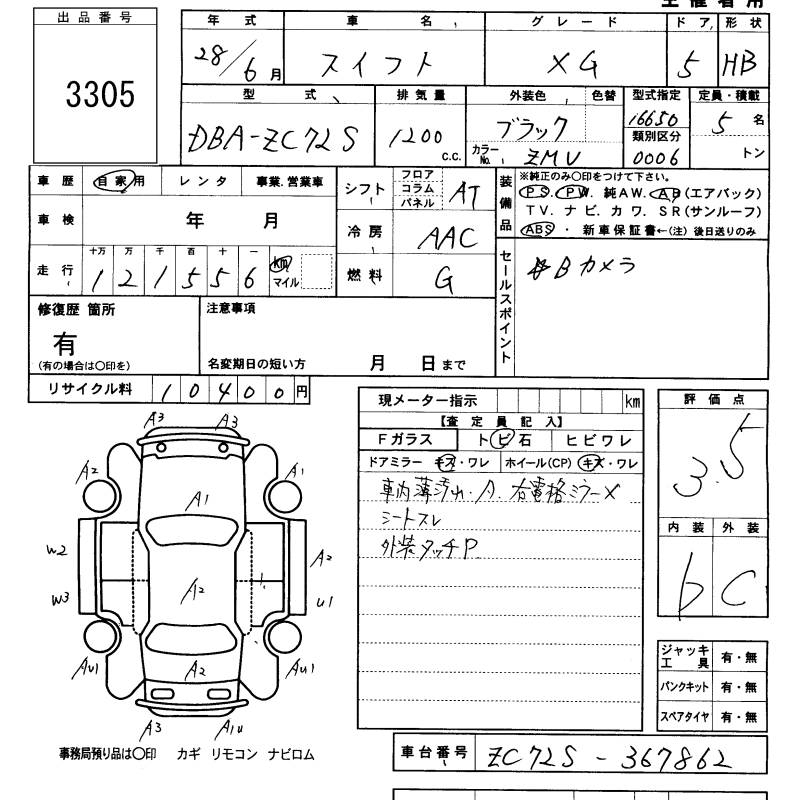 主催者用
出品番号
3305
年式 車名 グレード ドア 形状
28/6月 スイフト XG 5 HB
型式 排気量 外装色 色替 型式指定 定員・積載
DBA-ZC72S 1200 c.c. ブラック 16650 5名
カラーNo. ZMV 類別区分 0006 トン
車歴 自家用 レンタ 事業.営業車
車検 年 月
走行 十万 万 千 百 十 一
1 2 1 5 5 6 km マイル
シフト フロア コラム パネル AT
冷房 AAC
燃料 G
装備品 ※純正のみ○印をつけて下さい。
PS. PW. 純AW. AB(エアバック)
TV. ナビ. カワ. SR(サンルーフ)
ABS ・ 新車保証書←(注)後日送りのみ
セールスポイント
Bカメラ
修復歴 箇所
有
(有の場合は○印を)
注意事項
名変期日の短い方 月 日まで
リサイクル料 10400円
現メーター指示 km
【査定員記入】
Fガラス トビ石 ヒビワレ
ドアミラー キズ・ワレ ホイール(CP) キズ・ワレ
車内薄汚れ・A. 右電格ミラーX
シートスレ
外装タッチP
評価点
3.5
内装 外装
b C
ジャッキ工具 有・無
パンクキット 有・無
スペアタイヤ 有・無
A3 A3
A2 A1
A1
W2 A2
A2
W3 U1
AU1 A2 AU1
A3 A1U
事務局預り品は○印 カギ リモコン ナビロム
車台番号 ZC72S-367862